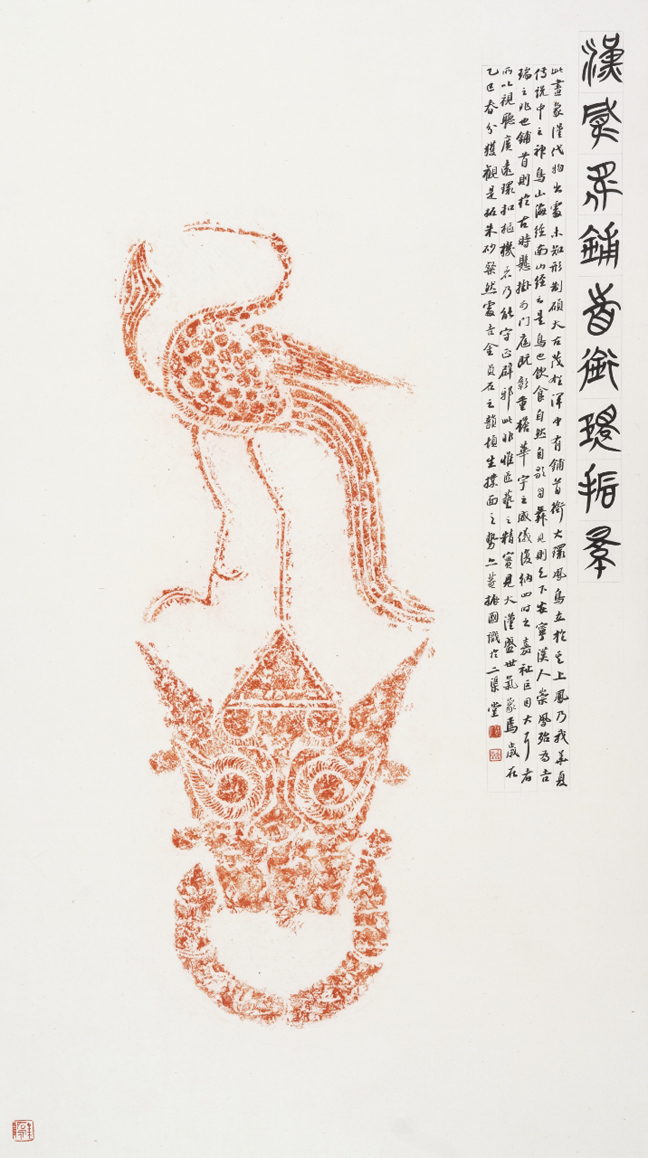 漢鋪首銜環
此畫象漢代物出處未知形制碩大古茂渾中有鋪首銜大環鳳鳥立於其上鳳乃我華夏
傳說中之神鳥山海經南山經云是鳥也飲食自然自歌自舞見則天下安寧漢人崇鳳殆為吉
瑞之兆也鋪首則於古時懸掛於門庭既彰重檐華宇之威儀復納四時之嘉祉巨目大耳者
所以視聽廣遠環扣樞機者乃能守正辟邪此非惟匠藝之精實見大漢盛世氣象焉歲在
乙巳春分獲觀是拓朱砂粲然處吉金貞石之韻頓生撲面之勢振國識於二渠堂